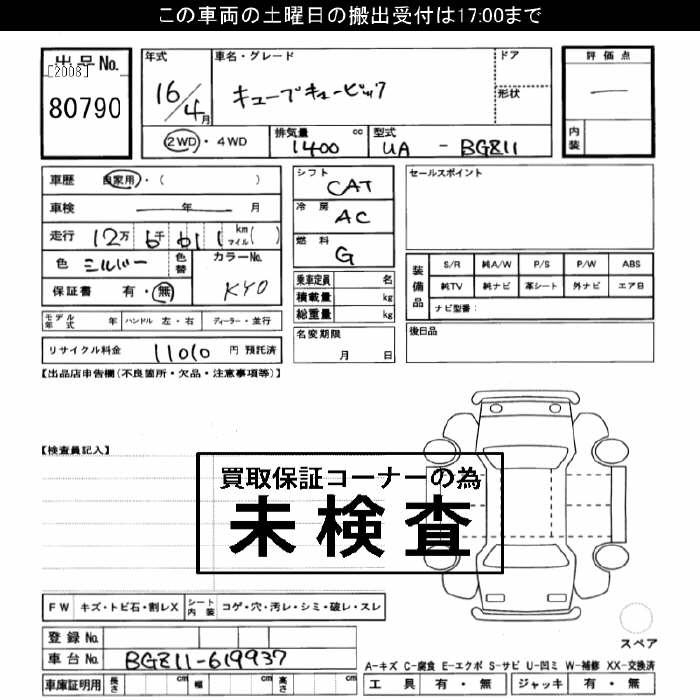 この車両の土曜日の搬出受付は17:00まで
出品No.
[2008]
80790
年式 車名・グレード ドア 形状
16/4月 キューブキュービック
2WD・4WD 排気量 cc 1400 型式 UA - BGZ11
評価点
—
内装
車歴 自家用・( )
車検 年 月
走行 12万 6千 611 km マイル( )
色 シルバー 色替 カラーNo. KY0
保証書 有・無
モデル年式 年 ハンドル 左・右 ディーラー・並行
リサイクル料金 11010 円 預託済
シフト CAT
冷房 AC
燃料 G
乗車定員 名
積載量 kg
総重量 kg
名変期限
月 日
セールスポイント
装備品 S/R 純A/W P/S P/W ABS
純TV 純ナビ 革シート 外ナビ エアB
ナビ型番:
後日品
【出品店申告欄(不良箇所・欠品・注意事項等)】
【検査員記入】
買取保証コーナーの為
未検査
FW キズ・トビ石・割レX シート内装 コゲ・穴・汚レ・シミ・破レ・スレ
登録No.
車台No. BGZ11-619937
車庫証明用 長さ cm 幅 cm 高さ cm
スペア
A-キズ C-腐食 E-エクボ S-サビ U-凹ミ W-補修 XX-交換済
工具 有・無 ジャッキ 有・無